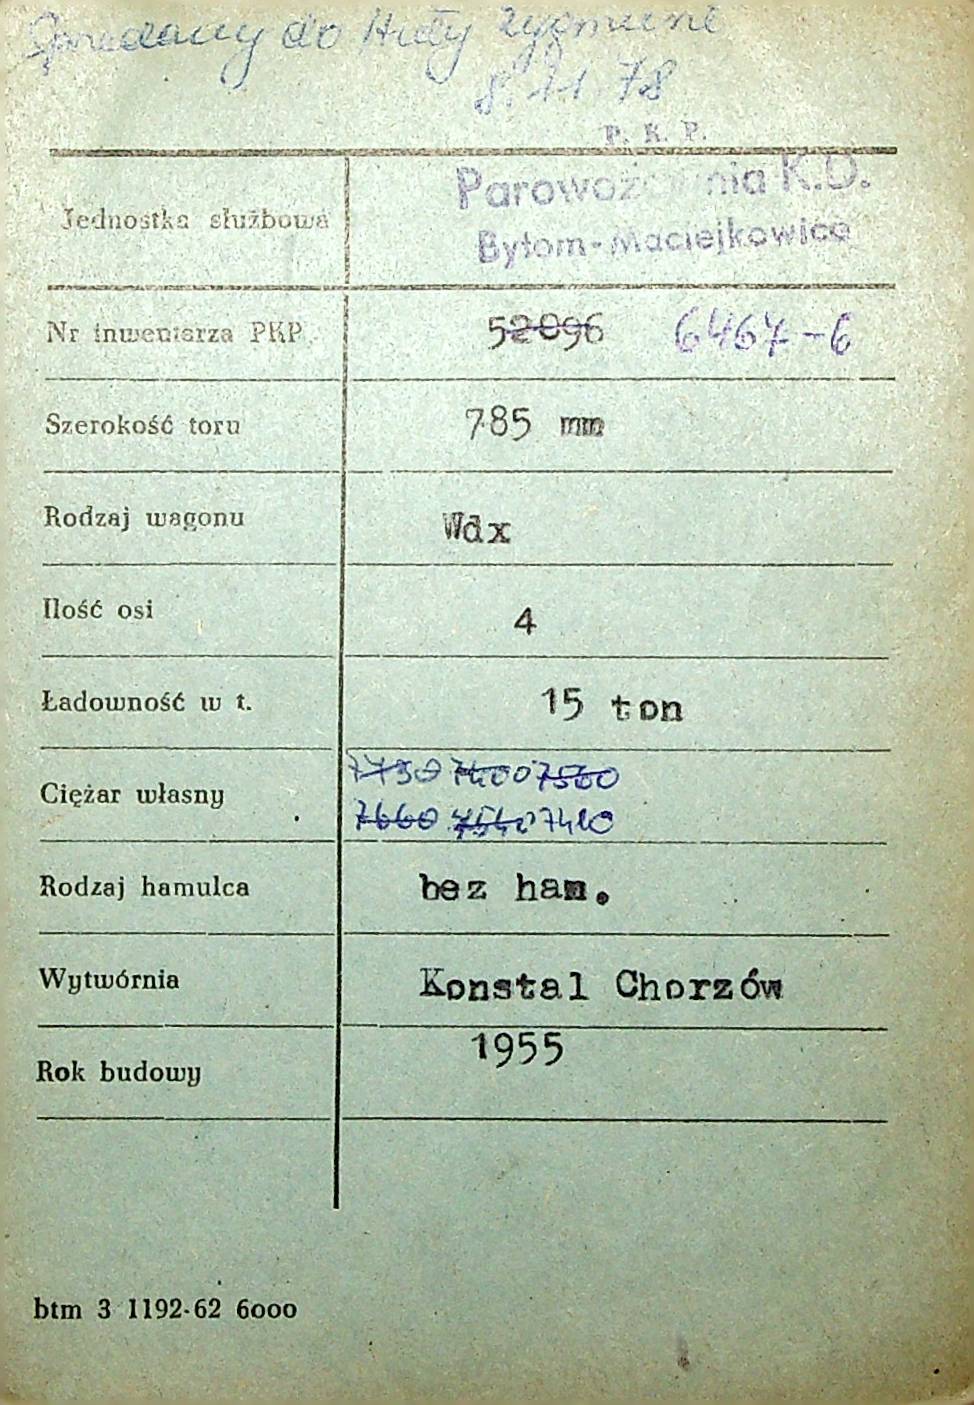 Sprzedany do Huty Zygmunt
8.11.78
P. K. P.
Jednostka służbowa Parowozownia K.D.
Bytom-Maciejkowice
Nr inwentarza PKP 52096 6467-6
Szerokość toru 785 mm
Rodzaj wagonu Wdx
Ilość osi 4
Ładowność w t. 15 ton
7450 7400 7500
Ciężar własny
7660 7540 7420
Rodzaj hamulca bez ham.
Wytwórnia Konstal Chorzów
1955
Rok budowy
btm 3 1192-62 6000